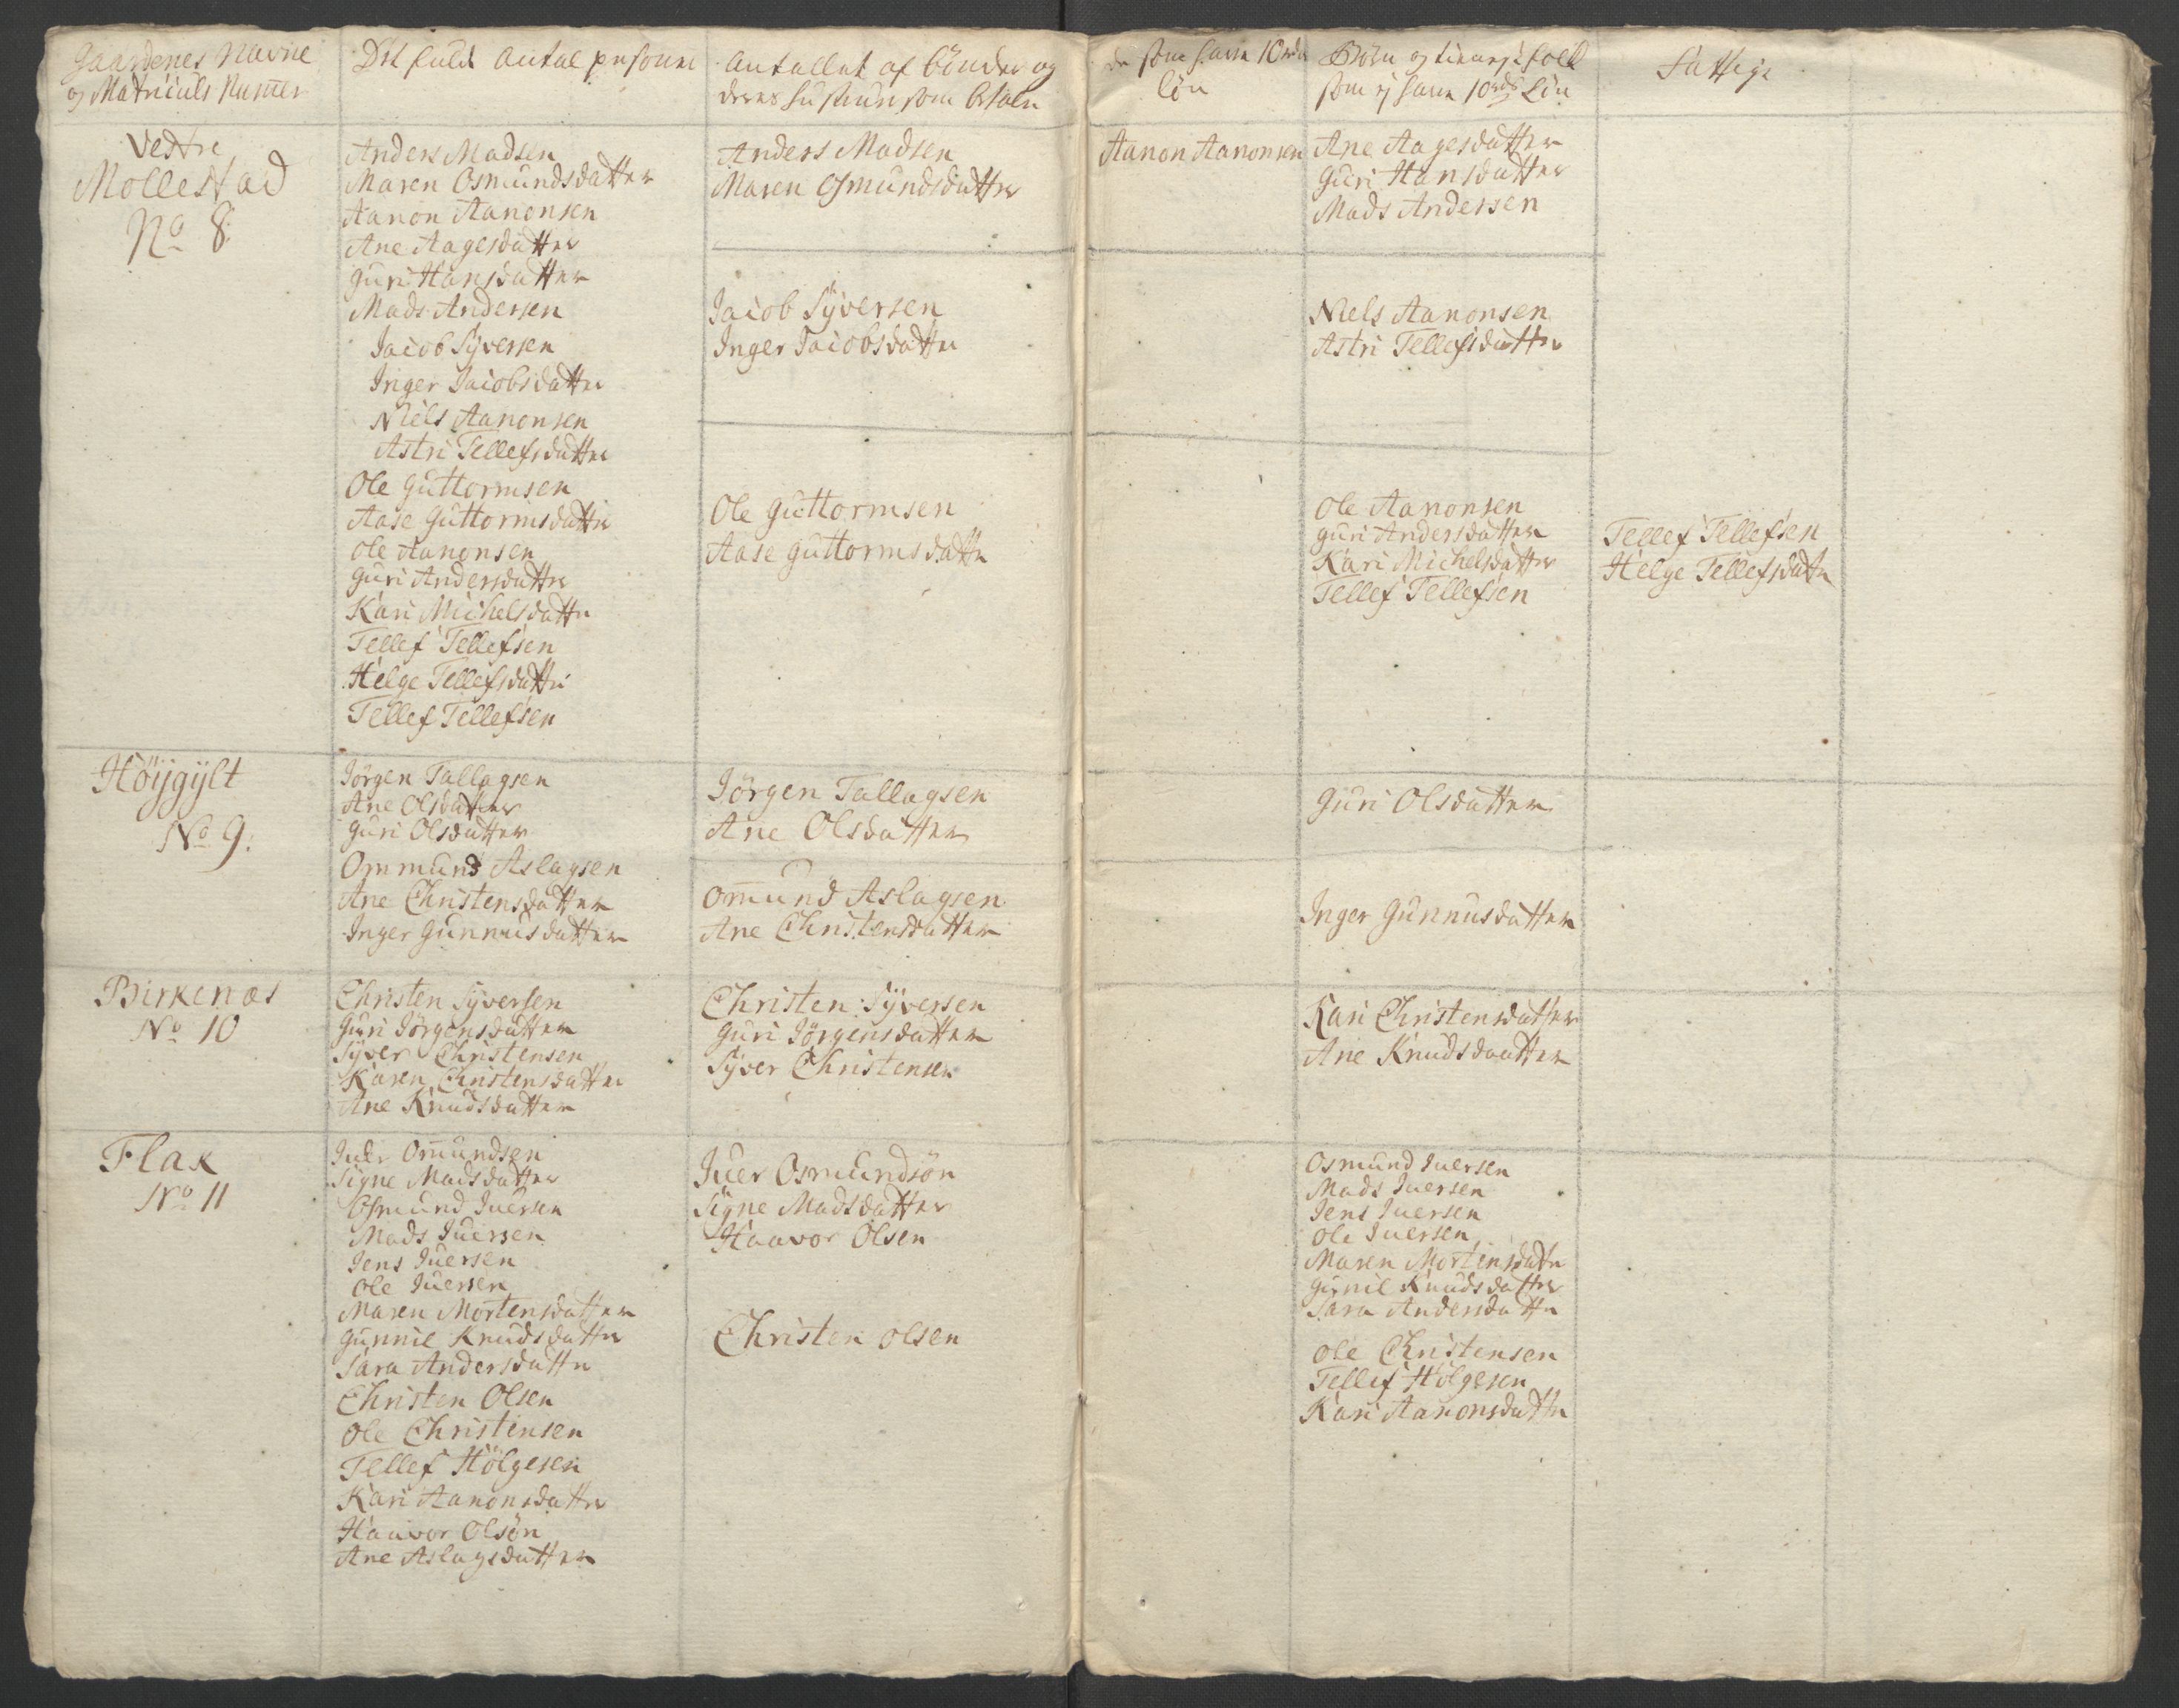 Gaardenes Navne
og Matriculs Numer
Det fulde Antal persouner
Antallet af bönder og
deres hustruer som betaler
de som have 10 rdr
lön
Börn og tienestefolk
som ej have 10 rdr Lön
Fattige
Vestre
Mollestad
No 8.
Anders Madsen
Maren Osmundsdatter
Aanon Aanonsen
Ane Aagesdatter
Guri Hansdatter
Mads Andersen
Jacob Syversen
Inger Jacobsdatter
Niels Aanonsen
Astri Tellefsdatter
Ole Guttormsen
Aase Guttormsdatter
Ole Aanonsen
Guri Andersdatter
Kari Michelsdatter
Tellef Tellefsen
Helge Tellefsdatter
Tellef Tellefsen
Anders Madsen
Maren Osmundsdatter
Jacob Syversen
Inger Jacobsdatter
Ole Guttormsen
Aase Guttormsdatter
Aanon Aanonsen
Ane Aagesdatter
Guri Hansdatter
Mads Andersen
Niels Aanonsen
Astri Tellefsdatter
Ole Aanonsen
Guri Andersdatter
Kari Michelsdatter
Tellef Tellefsen
Tellef Tellefsen
Helge Tellefsdatter
Höÿgÿlt
No 9.
Jörgen Tallagsen
Ane Olsdatter
Guri Olsdatter
Ommund Aslagsen
Ane Christensdatter
Inger Gunnusdatter
Jörgen Tallagsen
Ane Olsdatter
Omund Aslagsen
Ane Christensdatter
Guri Olsdatter
Inger Gunnusdatter
Birkenæs
No 10
Christen Syversen
Guri Jörgensdatter
Syver Christensen
Karen Christensdatter
Ane Knudsdatter
Christen Syversen
Guri Jörgensdatter
Syver Christensen
Kari Christensdatter
Ane Knudsdaatter
Flak
No 11
Iuer Omundsen
Signe Madsdatter
Osmund Iuersen
Mads Iuersen
Jens Iuersen
Ole Iuersen
Maren Mortensdatter
Gunnil Knudsdatter
Sara Andersdatter
Christen Olsen
Ole Christensen
Tellef Hölgesen
Kari Aanonsdatter
Haavor Olsön
Ane Aslagsdatter
Iuer Osmundsön
Signe Madsdatter
Haavor Olsen
Christen Olsen
Osmund Iuersen
Mads Iuersen
Jens Iuersen
Ole Iuersen
Maren Mortensdatter
Gunnil Knudsdatter
Sara Andersdatter
Ole Christensen
Tellef Hölgesen
Kari Aanonsdatter